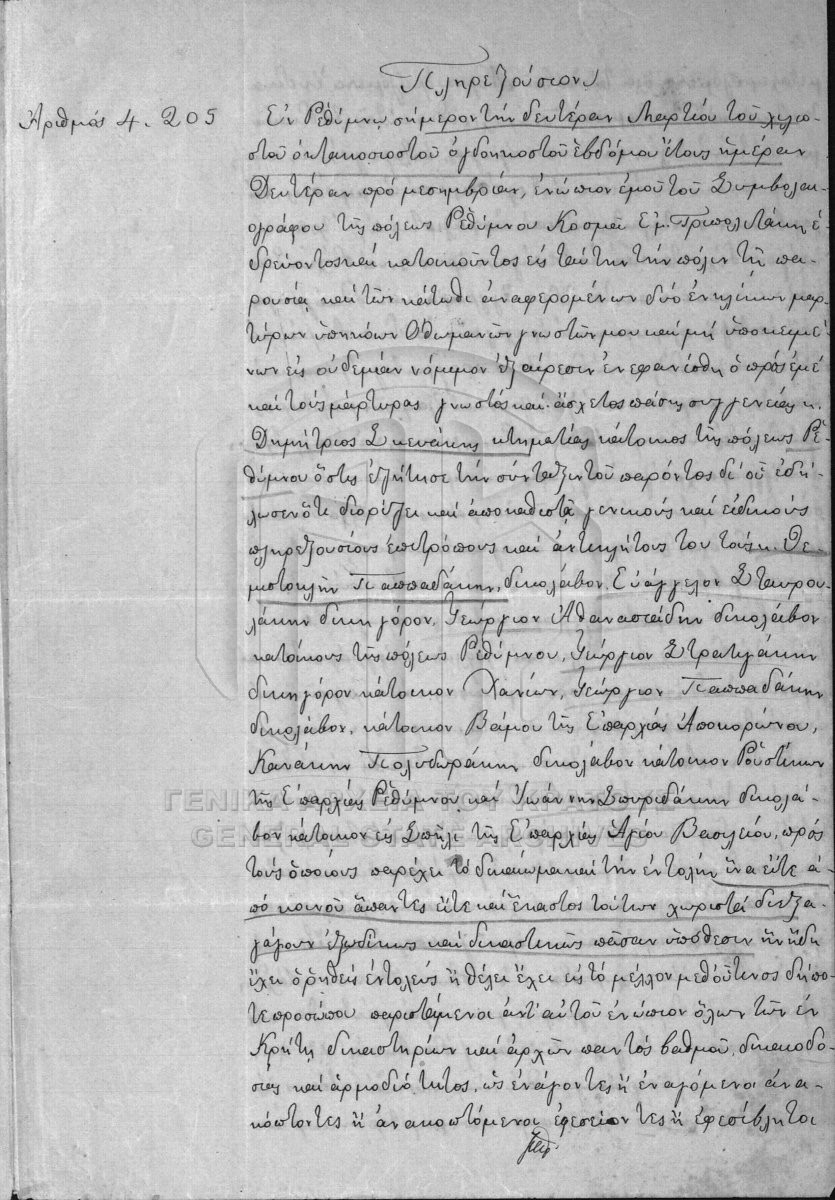 Πληρεξούσιον
Αριθμός 4.205
Εν Ρεθύμνῳ σήμερον την δευτέραν Μαρτίου τοῦ χιλιο-
στοῦ οκτακοσιοστοῦ ογδοηκοστοῦ ἑβδόμου ἔτους ἡμέραν
Δευτέραν πρό μεσημβρίαν, ἐνώπιον ἐμοῦ τοῦ Συμβολαι-
ογράφου τῆς πόλεως Ρεθύμνου Κοσμᾶ Εμ. Τριπολιτάκη ἑ-
δρεύοντος καί κατοικοῦντος εἰς ταύτην τήν πόλιν τῇ πα-
ρουσίᾳ καί τῶν κάτωθι ἀναφερομένων δύο ἐνηλίκων μαρ-
τύρων ὑπηκόων Οθωμανῶν γνωστῶν μου καί μή ὑποκειμέ-
νων εἰς οὐδεμίαν νόμιμον ἐξαίρεσιν ἐνεφανίσθη ὁ πρός ἐμέ
καί τούς μάρτυρας γνωστός καί ἄσχετος πάσης συγγενείας κ.
Δημήτριος Σκευάκης κτηματίας κάτοικος τῆς πόλεως Ρε-
θύμνου ὅστις ἐζήτησε τήν σύνταξιν τοῦ παρόντος δι' οὗ ἐδή-
λωσεν ὅτι διορίζει καί ἀποκαθιστᾷ γενικούς καί εἰδικούς
πληρεξουσίους ἐπιτρόπους καί ἀντικλήτους του τούς κ. Θε-
μιστοκλῆν Παππαδάκην, δικολάβον, Εὐάγγελον Σταυρου-
λάκην δικηγόρον, Γεώργιον Αθανασιάδην δικολάβον
κατοίκους τῆς πόλεως Ρεθύμνου, Γεώργιον Στρατηγάκην
δικηγόρον κάτοικον Χανίων, Γεώργιον Παππαδάκην
δικολάβον, κάτοικον Βάμου τῆς Επαρχίας Αποκορώνου,
Κανάκην Πολυδωράκην δικολάβον κάτοικον Ρουστίκων
τῆς Επαρχίας Ρεθύμνου καί Ιωάννην Σπυριδάκην δικολά-
βον κάτοικον εἰς Σπῆλι τῆς Επαρχίας Αγίου Βασιλείου, πρός
τούς ὁποίους παρέχει τό δικαίωμα καί τήν ἐντολήν ἵνα εἴτε ἀ-
πό κοινοῦ ἅπαντες εἴτε καί ἕκαστος τούτων χωριστά διεξα-
γάγουν ἐξωδίκως καί δικαστικῶς πᾶσαν ὑπόθεσιν ἥν ἤδη
ἔχει ὁ ῥηθείς ἐντολεύς ἤ θέλει ἔχει εἰς τό μέλλον μεθ' οὕτινος δήπο-
τε προσώπου παριστάμενοι ἀντ' αὐτοῦ ἐνώπιον ὅλων τῶν ἐν
Κρήτῃ δικαστηρίων καί ἀρχῶν παντός βαθμοῦ, δικαιοδο-
σίας καί ἁρμοδιότητος, ὡς ἐνάγοντες ἤ ἐναγόμενοι ἀνα-
κόπτοντες ἤ ἀνακοπτόμενοι ἐφεσείοντες ἤ ἐφεσίβλητοι
ΓΕΝΙΚΑ ΑΡΧΕΙΑ ΤΟΥ ΚΡΑΤΟΥΣ
GENERAL STATE ARCHIVES